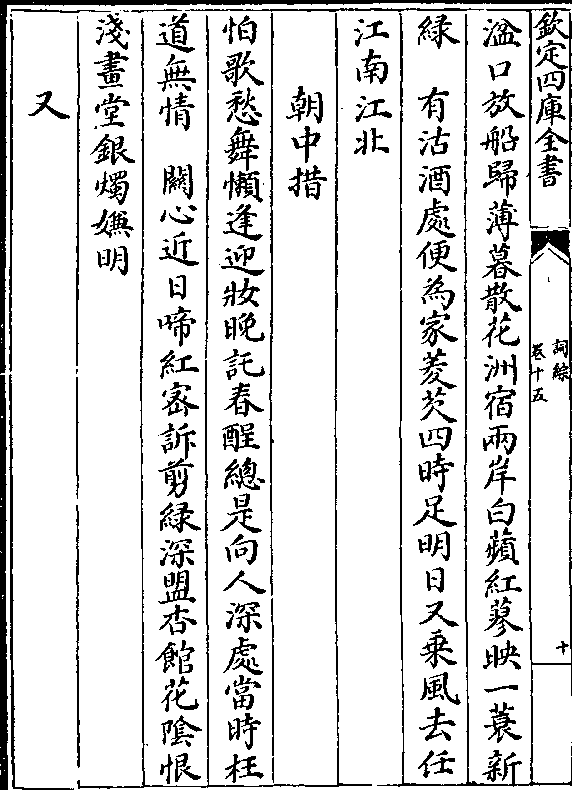 欽定四庫全書
詞綜
卷十五
十
湓口放船歸薄暮散花洲宿兩岸白蘋紅蓼映一蓑新
綠　有沽酒處便為家菱芡四時足明日又乗風去任
江南江北
朝中措
怕歌愁舞懶逢迎妝晚託春酲總是向人深處當時枉
道無情　關心近日啼紅宻訴剪綠深盟杏館花陰恨
淺畫堂銀燭嫌明
又